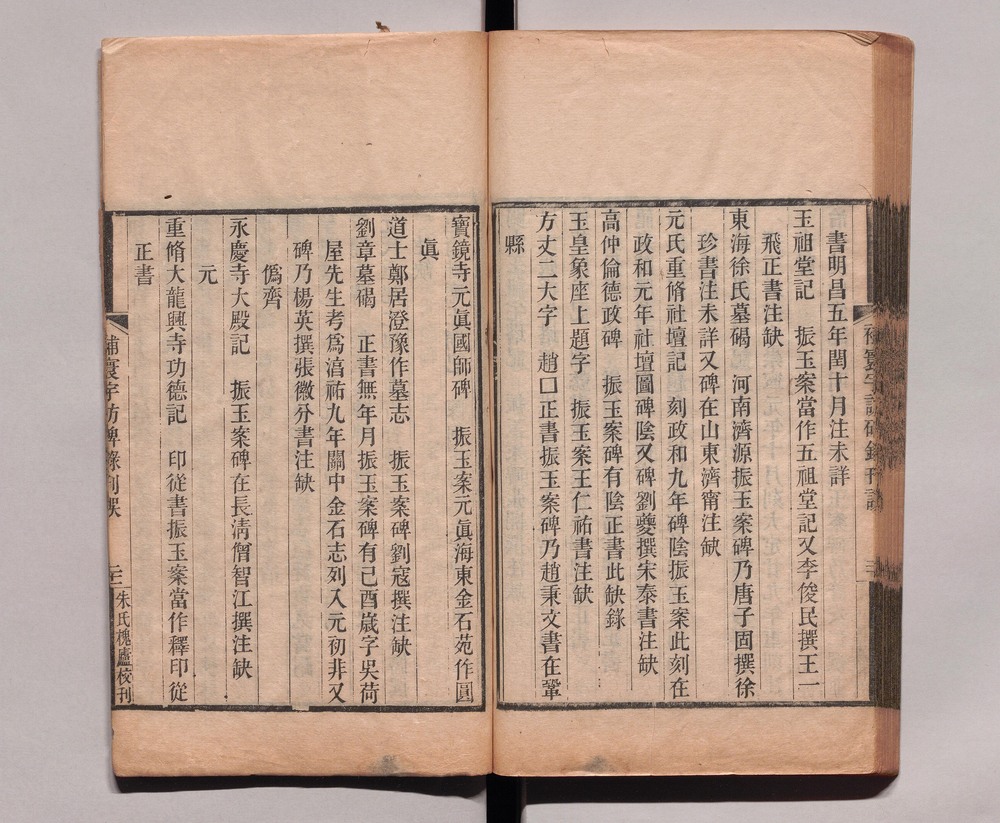 書明昌五年閏十月注未詳
玉祖堂記　振玉案當作五祖堂記又李俊民撰王一
飛正書注缺
東海徐氏墓碣　河南濟源振玉案碑乃唐子固撰徐
珍書注未詳又碑在山東濟甯注缺
元氏重脩社壇記　刻政和九年碑陰振玉案此刻在
政和元年社壇圖碑陰又碑劉夔撰宋泰書注缺
高仲倫德政碑　振玉案碑有陰正書此缺錄
玉皇象座上題字　振玉案王仁祐書注缺
方丈二大字　趙口正書振玉案碑乃趙秉文書在鞏
縣
寶鏡寺元眞國師碑　振玉案元眞海東金石苑作圓
眞
道士鄭居澄豫作墓志　振玉案碑劉寇撰注缺
劉章墓碣　正書無年月振玉案碑有己酉歲字吳荷
屋先生考爲淯祐九年關中金石志列入元初非又
碑乃楊英撰張徽分書注缺
僞齊
永慶寺大殿記　振玉案碑在長淸僧智江撰注缺
元
重脩大龍興寺功德記　印從書振玉案當作釋印從
正書
補寰宇訪碑錄刊誤
二
朱氏槐廬校刊